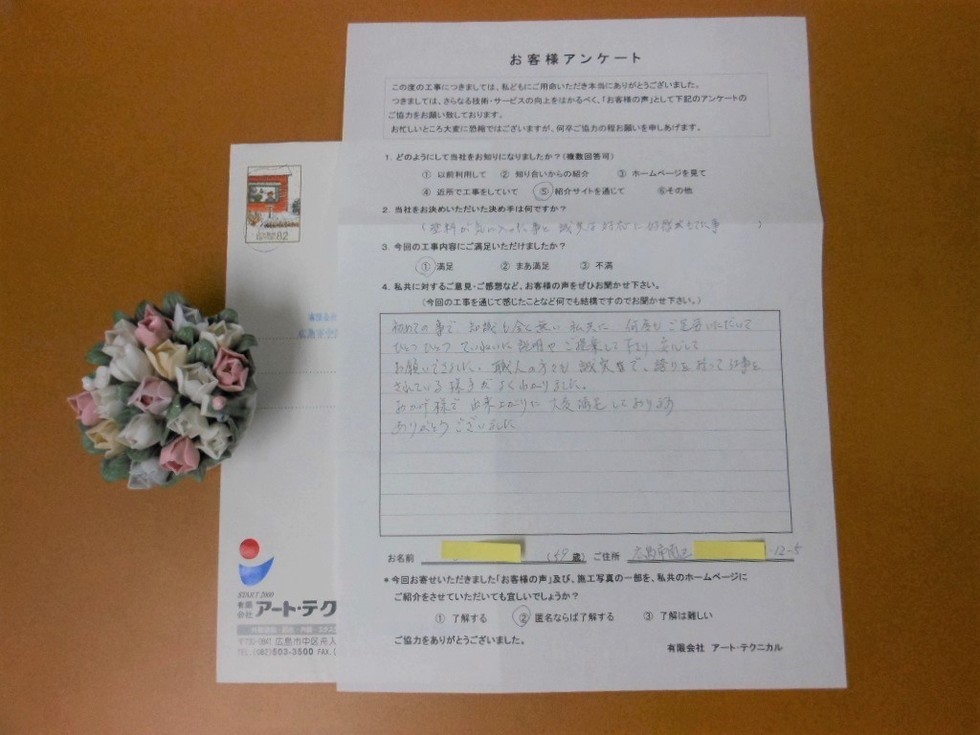 お客様アンケート
この度の工事につきましては、私どもにご用命いただき本当にありがとうございました。
つきましては、さらなる技術・サービスの向上をはかるべく、「お客様の声」として下記のアンケートの
ご協力をお願い致しております。
お忙しいところ大変に恐縮ではございますが、何卒ご協力の程お願いを申しあげます。
1. どのようにして当社をお知りになりましたか？(複数回答可)
① 以前利用して ② 知り合いからの紹介 ③ ホームページを見て
④ 近所で工事をしていて ⑤ 紹介サイトを通じて ⑥その他
2. 当社をお決めいただいた決め手は何ですか？
( 塗料が気に入った事と 誠実な対応に好感がもてた事 )
3. 今回の工事内容にご満足いただけましたか？
① 満足 ② まあ満足 ③ 不満
4. 私共に対するご意見・ご感想など、お客様の声をぜひお聞かせ下さい。
(今回の工事を通じて感じたことなど何でも結構ですのでお聞かせ下さい。)
初めての事で 知識も全く無い私共に 何度もご足労いただいて
ひとつひとつ ていねいに説明やご提案して下さり 安心して
お願いできました。職人の方々も 誠実で、誇りを持って仕事を
されている様子がよくわかりました。
おかげ様で 出来上がりに 大変満足しております
ありがとうございました
お名前 (59 歳) ご住所 広島市南区 -12-5
*今回お寄せいただきました「お客様の声」及び、施工写真の一部を、私共のホームページに
ご紹介をさせていただいても宜しいでしょうか？
① 了解する ② 匿名ならば了解する ③ 了解は難しい
ご協力をありがとうございました。
有限会社 アート・テクニカル
82
START 2000
有限会社 アート・テク
広島市中区舟入
TEL.(082)503-3500 FAX.(